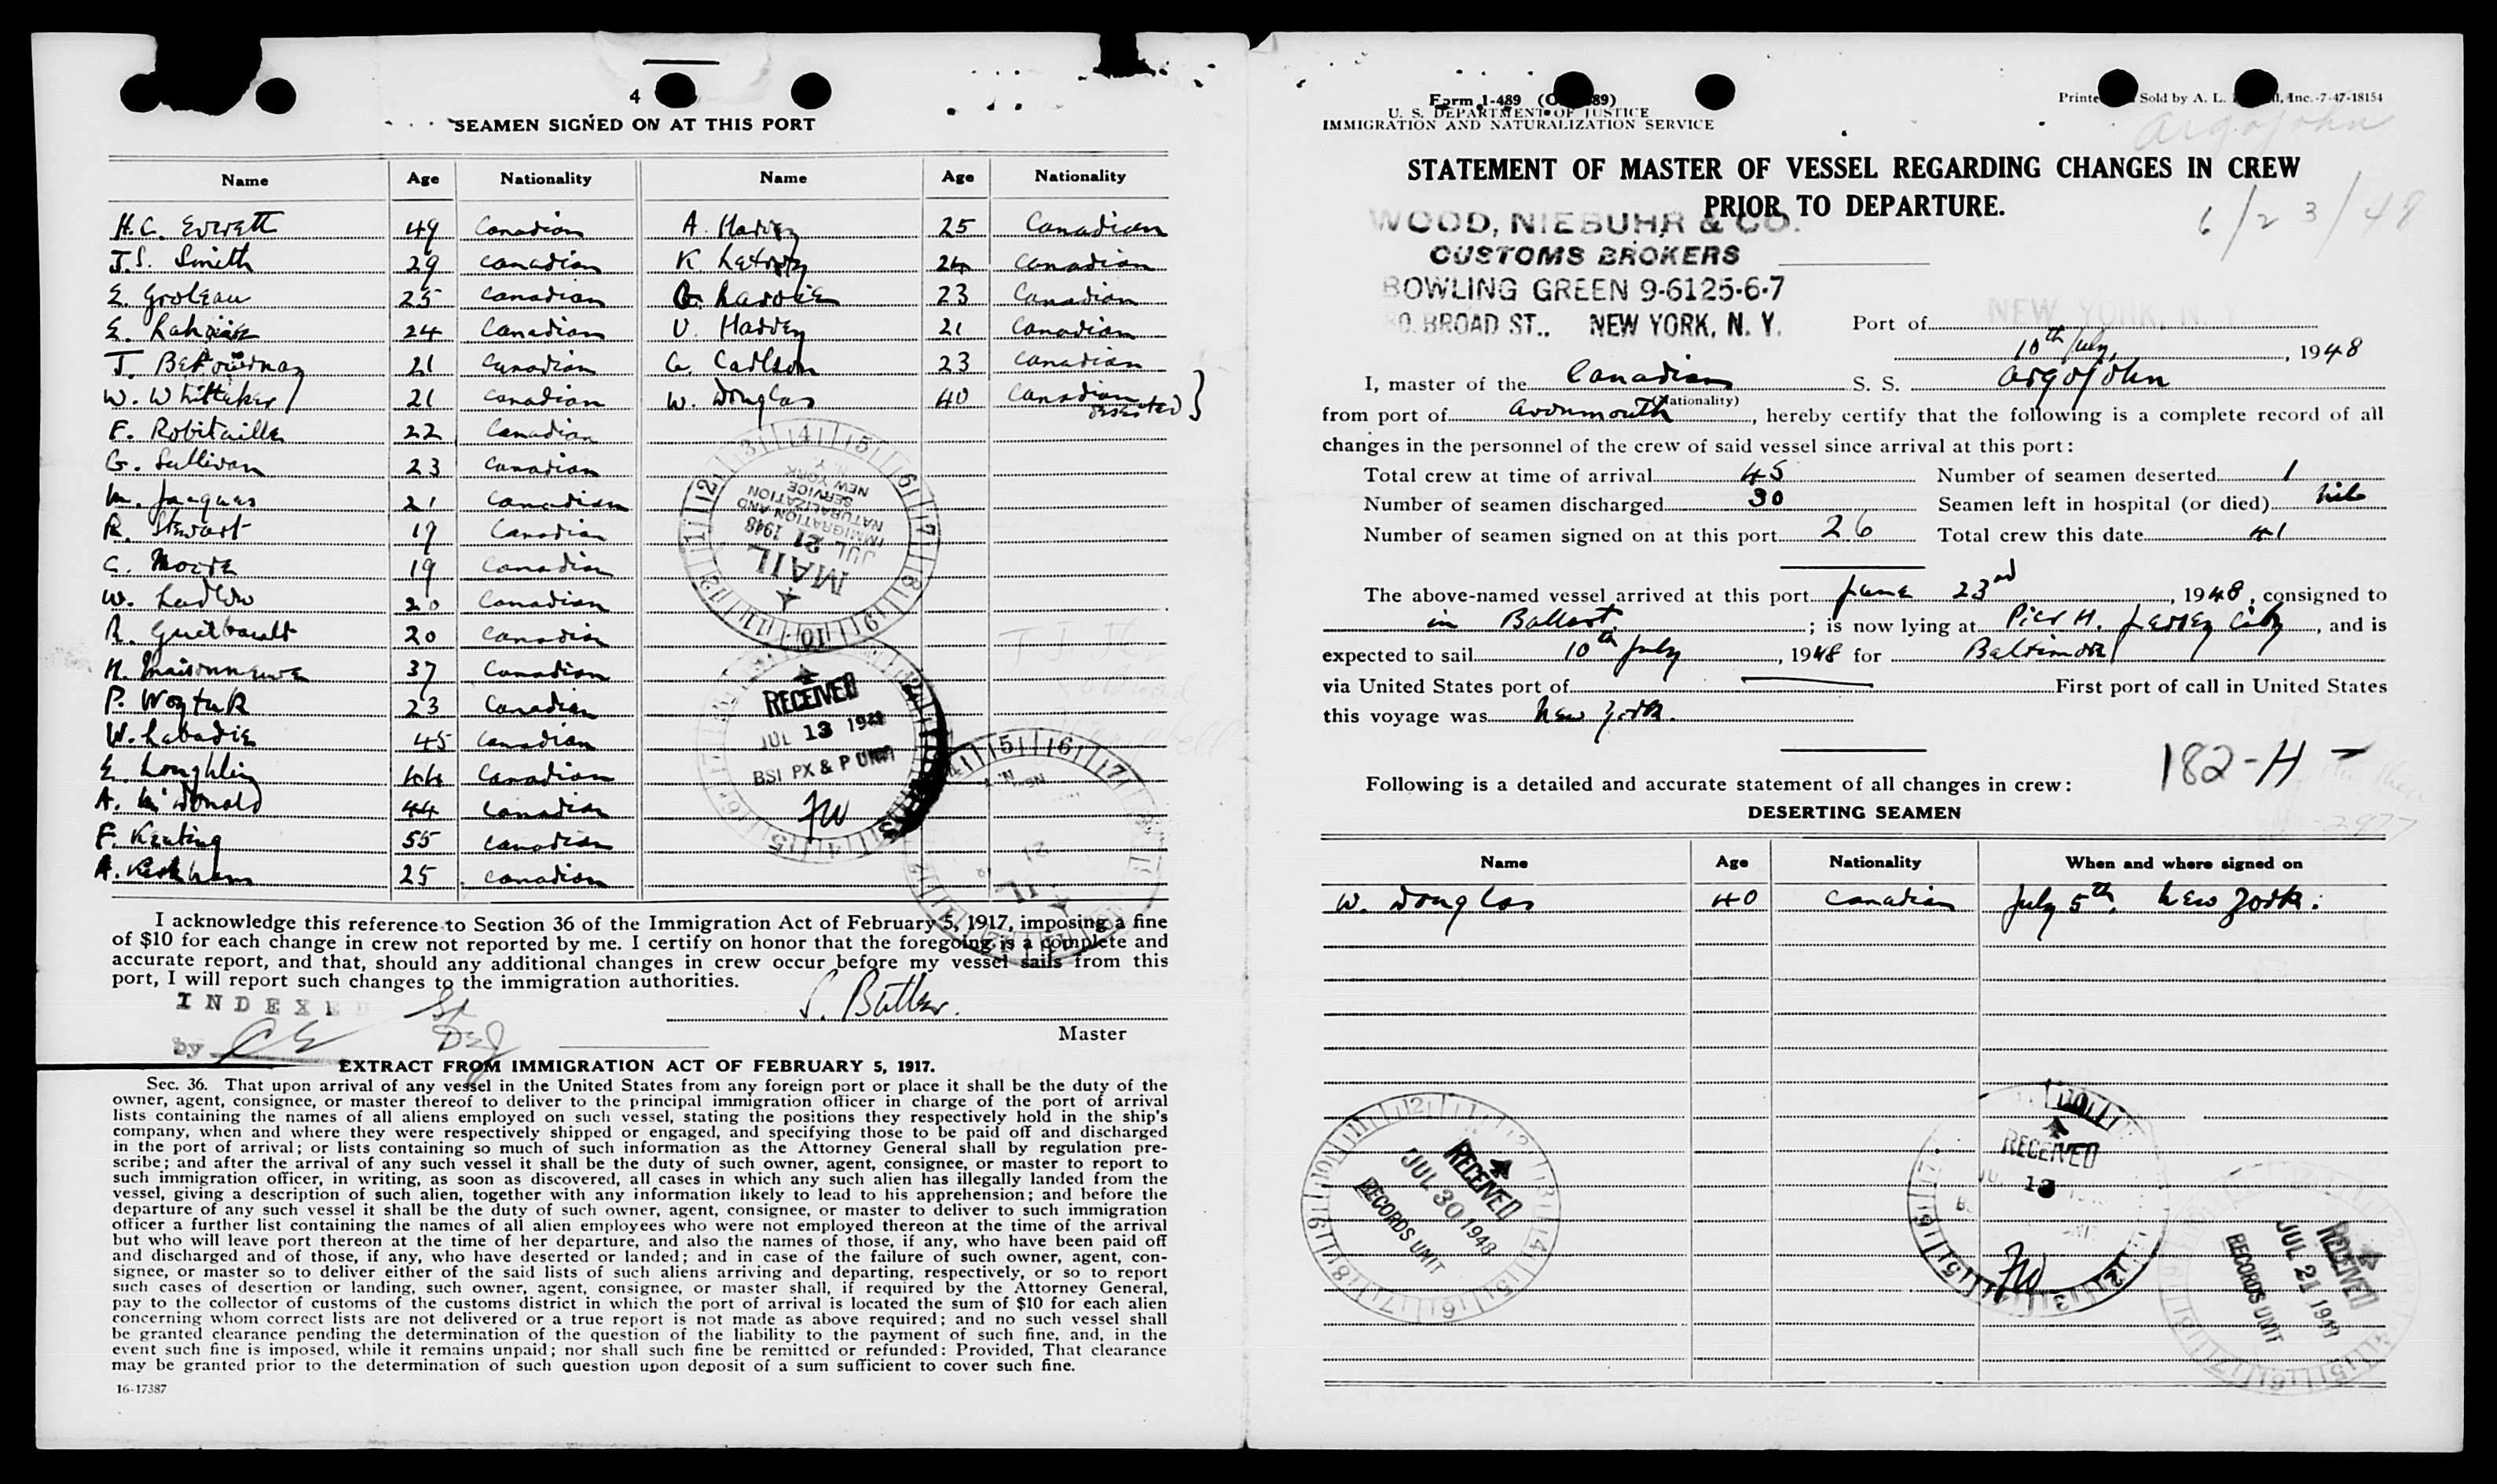 4
SEAMEN SIGNED ON AT THIS PORT
Name Age Nationality Name Age Nationality
H.C. Everett 49 Canadian A. Harvey 25 Canadian
J.S. Smith 29 Canadian K. 24 Canadian
E. Groleau 25 Canadian 23 Canadian
E. 24 Canadian V. Harvey 21 Canadian
J. 21 Canadian G. Carlson 23 Canadian
W. Whittaker 21 Canadian W. Douglas 40 Canadian
deserted }
F. Robitaille 22 Canadian
G. Sullivan 23 Canadian
M. Jacques 21 Canadian
R. Stewart 19 Canadian
C. Moore 19 Canadian
W. Ludlow 20 Canadian
R. 20 Canadian
H. Maisonneuve 37 Canadian
P. Woytuk 23 Canadian
W. Labadie 45 Canadian
E. Loughlin 44 Canadian
A. McDonald 44 Canadian
F. Keating 55 Canadian
A. 25 Canadian
IMMIGRATION AND
NATURALIZATION
SERVICE
NEW YORK
N. Y.
JUL 21 1948
MAIL
RECEIVED
JUL 13 1948
BSI PX & P UNIT
JW
I acknowledge this reference to Section 36 of the Immigration Act of February 5, 1917, imposing a fine
of $10 for each change in crew not reported by me. I certify on honor that the foregoing is a complete and
accurate report, and that, should any additional changes in crew occur before my vessel sails from this
port, I will report such changes to the immigration authorities.
INDEXED
by
S. Butler.
Master
EXTRACT FROM IMMIGRATION ACT OF FEBRUARY 5, 1917.
Sec. 36. That upon arrival of any vessel in the United States from any foreign port or place it shall be the duty of the
owner, agent, consignee, or master thereof to deliver to the principal immigration officer in charge of the port of arrival
lists containing the names of all aliens employed on such vessel, stating the positions they respectively hold in the ship's
company, when and where they were respectively shipped or engaged, and specifying those to be paid off and discharged
in the port of arrival; or lists containing so much of such information as the Attorney General shall by regulation pre-
scribe; and after the arrival of any such vessel it shall be the duty of such owner, agent, consignee, or master to report to
such immigration officer, in writing, as soon as discovered, all cases in which any such alien has illegally landed from the
vessel, giving a description of such alien, together with any information likely to lead to his apprehension; and before the
departure of any such vessel it shall be the duty of such owner, agent, consignee, or master to deliver to such immigration
officer a further list containing the names of all alien employees who were not employed thereon at the time of the arrival
but who will leave port thereon at the time of her departure, and also the names of those, if any, who have been paid off
and discharged and of those, if any, who have deserted or landed; and in case of the failure of such owner, agent, con-
signee, or master so to deliver either of the said lists of such aliens arriving and departing, respectively, or so to report
such cases of desertion or landing, such owner, agent, consignee, or master shall, if required by the Attorney General,
pay to the collector of customs of the customs district in which the port of arrival is located the sum of $10 for each alien
concerning whom correct lists are not delivered or a true report is not made as above required; and no such vessel shall
be granted clearance pending the determination of the question of the liability to the payment of such fine, and, in the
event such fine is imposed, while it remains unpaid; nor shall such fine be remitted or refunded: Provided, That clearance
may be granted prior to the determination of such question upon deposit of a sum sufficient to cover such fine.
16-17387
Form I-489
U. S. DEPARTMENT OF JUSTICE
IMMIGRATION AND NATURALIZATION SERVICE
Sold by A. L. Inc.-7-47-18154
Argojohn
STATEMENT OF MASTER OF VESSEL REGARDING CHANGES IN CREW
PRIOR TO DEPARTURE.
6/23/48
WOOD, NIEBUHR & CO.
CUSTOMS BROKERS
BOWLING GREEN 9-6125-6-7
80 BROAD ST., NEW YORK, N. Y.
Port of NEW YORK, N. Y.
10th July, , 1948
I, master of the Canadian S. S. Argojohn
(Nationality)
from port of Avonmouth, hereby certify that the following is a complete record of all
changes in the personnel of the crew of said vessel since arrival at this port:
Total crew at time of arrival 45 Number of seamen deserted 1
Number of seamen discharged 30 Seamen left in hospital (or died) Nil
Number of seamen signed on at this port 26 Total crew this date 41
The above-named vessel arrived at this port June 23rd, 1948, consigned to
in Ballast. ; is now lying at Pier H. Jersey City, and is
expected to sail 10th July, 1948 for Baltimore
via United States port of — First port of call in United States
this voyage was New York.
182-H -
Following is a detailed and accurate statement of all changes in crew:
DESERTING SEAMEN
Name Age Nationality When and where signed on
W. Douglas 40 Canadian July 5th, New York.
RECEIVED
JUL 30 1948
RECORDS UNIT
RECEIVED
13
JW
RECEIVED
JUL 21 1948
RECORDS UNIT